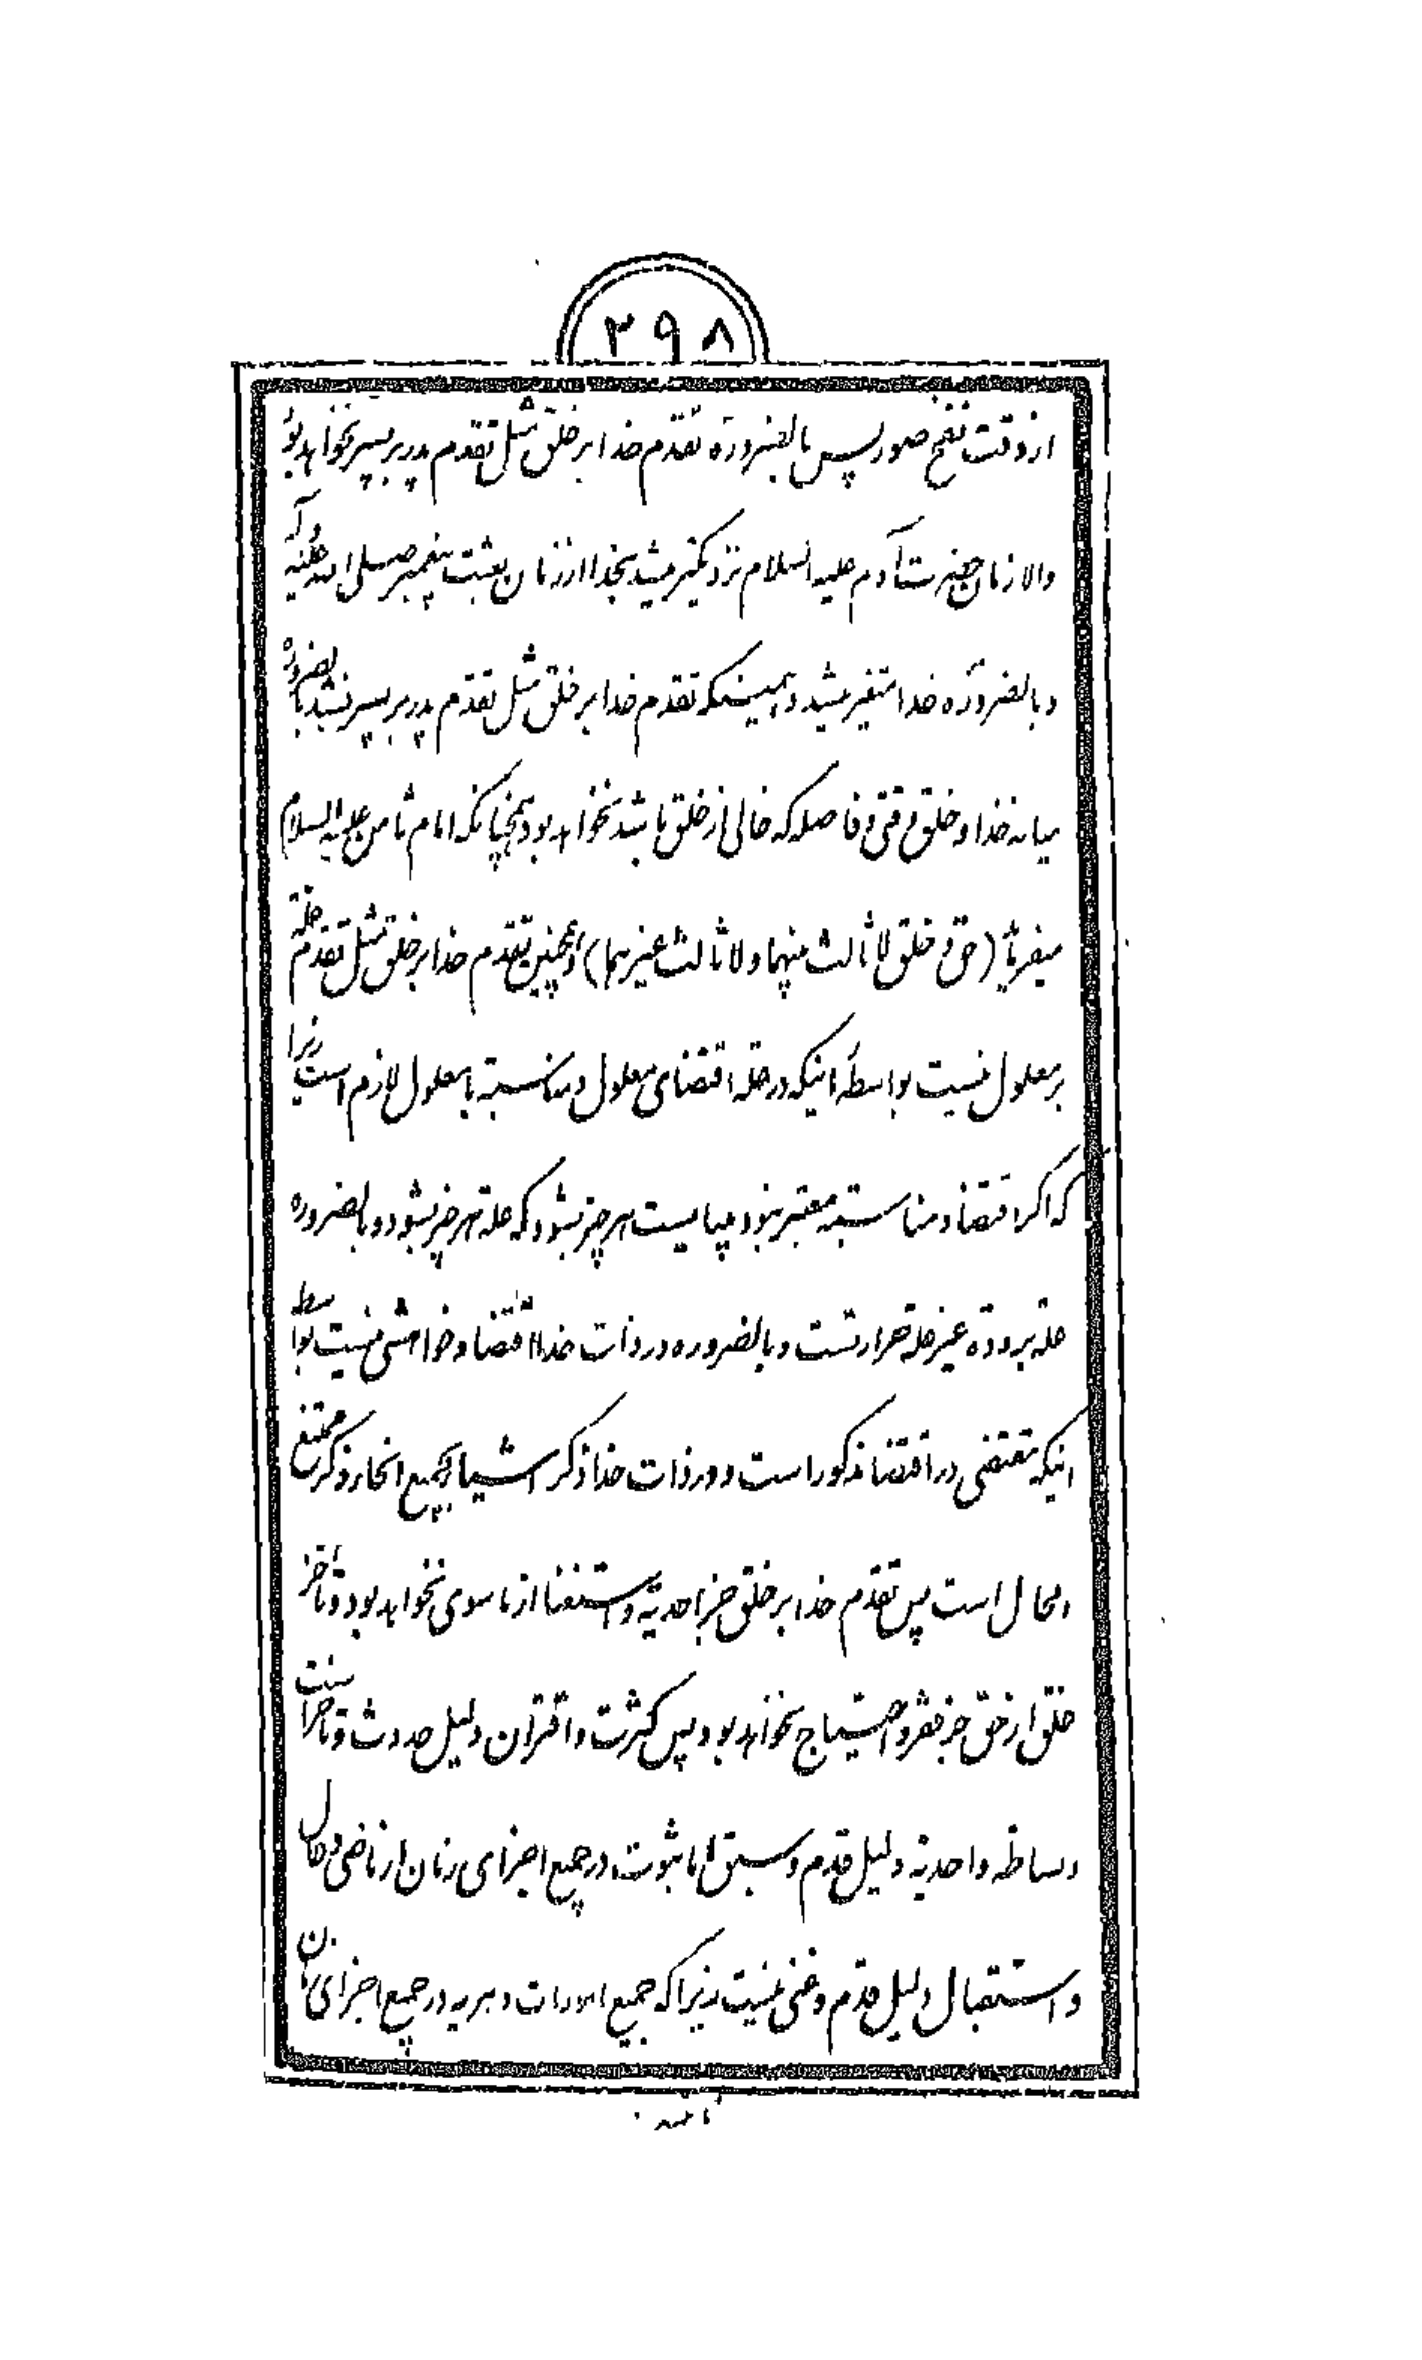 ۳۹۸
از وقت نفخ صور پس بالضروره تقدم خدا بر خلق مثل تقدم پدر بر پسر نخواهد بود
والا زمان حضرت آدم علیه السلام نزدیکتر میشد بخدا از زمان بعثت پیغمبر صلی الله علیه و آله
و بالضروره خدا متغیر میشد و همینکه تقدم خدا بر خلق مثل تقدم پدر بر پسر نشد بالضروره
میانه خدا و خلق وقتی و فاصله که خالی از خلق باشد نخواهد بود همچنانکه امام ثامن علیه السلام
میفرماید (حق و خلق لا ثالث بینهما ولا ثالث غیرهما) و همچنین تقدم خدا بر خلق مثل تقدم علة
بر معلول نیست بواسطه اینکه در علة اقتضای معلول و مناسبة با معلول لازم است زیرا
که اگر اقتضا و مناسبة معتبر نبود میبایست هر چیز بشود که علة هر چیز بشود و بالضروره
علة برودة غیر علة حرارتست و بالضروره در ذات خدا اقتضا و خواهشی نیست بواسطه
اینکه مقتضی در اقتضا مذکور است و در ذات خدا ذکر اشیا بجمیع انحاء ذکر ممتنع
و محال است پس تقدم خدا بر خلق جز احدیة و استغنا از ماسوی نخواهد بود و تأخر
خلق از حق جز فقر و احتیاج نخواهد بود پس کثرت و اقتران دلیل حدوث و تأخر است
و بساطة و احدیة دلیل قدم و سبق اما ثبوت در جمیع اجزای زمان از ماضی و حال
و استقبال دلیل قدم و غنی نیست زیرا که جمیع دهریه در جمیع اجزای زمان